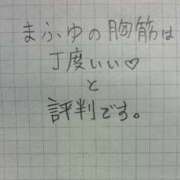 まふゆの胸筋は
丁度いい♡
と
評判です。